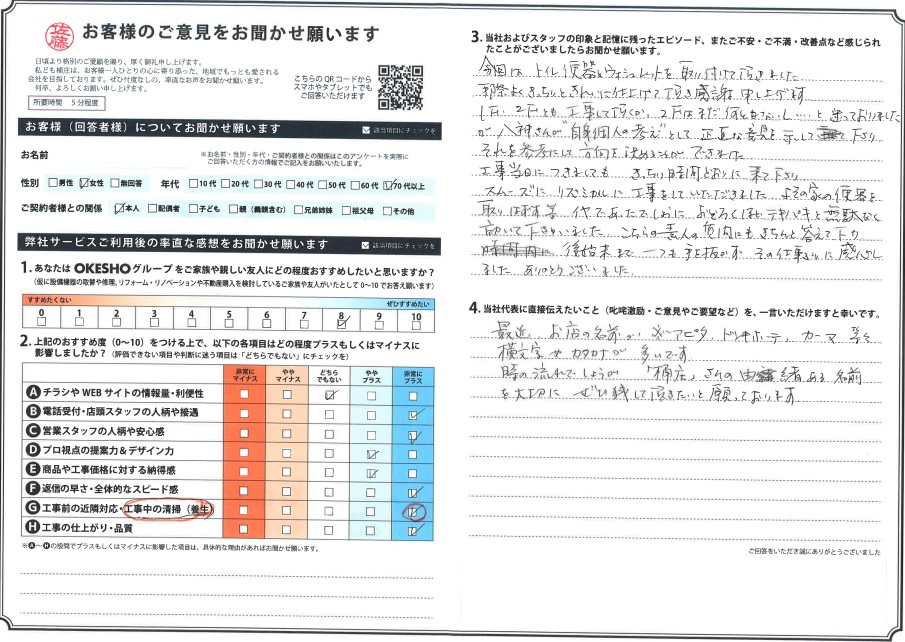 佐藤
お客様のご意見をお聞かせ願います
日頃より格別のご愛顧を賜り、厚く御礼申し上げます。
私ども桶庄は、お客様一人ひとりの心に寄り添った、地域でもっとも愛される
会社を目指しております。ぜひ忖度なしの、率直なお声をお聞かせ願います。
何卒、よろしくお願い申し上げます。
所要時間 5分程度
こちらのQRコードから
スマホやタブレットでも
ご回答いただけます
お客様（回答者様）についてお聞かせ願います
該当項目にチェックを
お名前
※お名前・性別・年代・ご契約者様との関係はこのアンケートを実際に
ご回答くださった方の情報でご記入をお願いいたします。
性別 男性 女性 無回答 年代 10代 20代 30代 40代 50代 60代 70代以上
ご契約者様との関係 本人 配偶者 子ども 親（義親含む） 兄弟姉妹 祖父母 その他
弊社サービスご利用後の率直な感想をお聞かせ願います
該当項目にチェックを
1. あなたは OKESHO グループをご家族や親しい友人にどの程度おすすめしたいと思いますか？
（仮に設備機器の取替や修理、リフォーム・リノベーションや不動産購入を検討しているご家族や友人がいたとして 0〜10でお答え願います）
すすめたくない ぜひすすめたい
0 1 2 3 4 5 6 7 8 9 10
2. 上記のおすすめ度（0〜10）をつける上で、以下の各項目はどの程度プラスもしくはマイナスに
影響しましたか？（評価できない項目や判断に迷う項目は「どちらでもない」にチェックを）
非常にマイナス ややマイナス どちらでもない ややプラス 非常にプラス
A チラシやWEBサイトの情報量・利便性
B 電話受付・店頭スタッフの人柄や接遇
C 営業スタッフの人柄や安心感
D プロ視点の提案力＆デザイン力
E 商品や工事価格に対する納得感
F 返信の早さ・全体的なスピード感
G 工事前の近隣対応・工事中の清掃（養生）
H 工事の仕上がり・品質
※A〜Hの設問でプラスもしくはマイナスに影響した項目は、具体的な理由があればお聞かせ願います。
3. 当社およびスタッフの印象と記憶に残ったエピソード、またご不安・ご不満・改善点など感じられ
たことがございましたらお聞かせ願います。
今回は トイレ便器とウォシュレットを取り付けて頂きました
手際よく きっちりときれいに仕上げて頂き感謝申し上げます
1F、2Fとも工事して頂くか、2Fはまだ何もしない と迷っておりました
が 八神さんが"自身個人の考え"として 正直な意見を示して下さり
それを参考にして 方向を決めることができました
工事当日につきましても きっちり時間どおりに来て下さり
スムーズに リズミカルに工事をしていただきました よその家の便器を
取りはずす等 仕事であたりまえに おどろくほどテキパキと無駄なく
動いて下さいました こちらの素人の質問にもきちんと答えて下さり
後始末まで 一つも手を抜かず その仕事ぶりに感心しました
ありがとうございました
4. 当社代表に直接伝えたいこと（叱咤激励・ご意見やご要望など）を、一言いただけますと幸いです。
最近 お店の名前が アピタ、ドンキホーテ、カーマ 等々
横文字やカタカナが 多いです
時の流れでしょうが 「桶庄」さんの由緒ある名前
を大切に ぜひ残して頂きたいと願っております
ご回答をいただき誠にありがとうございました